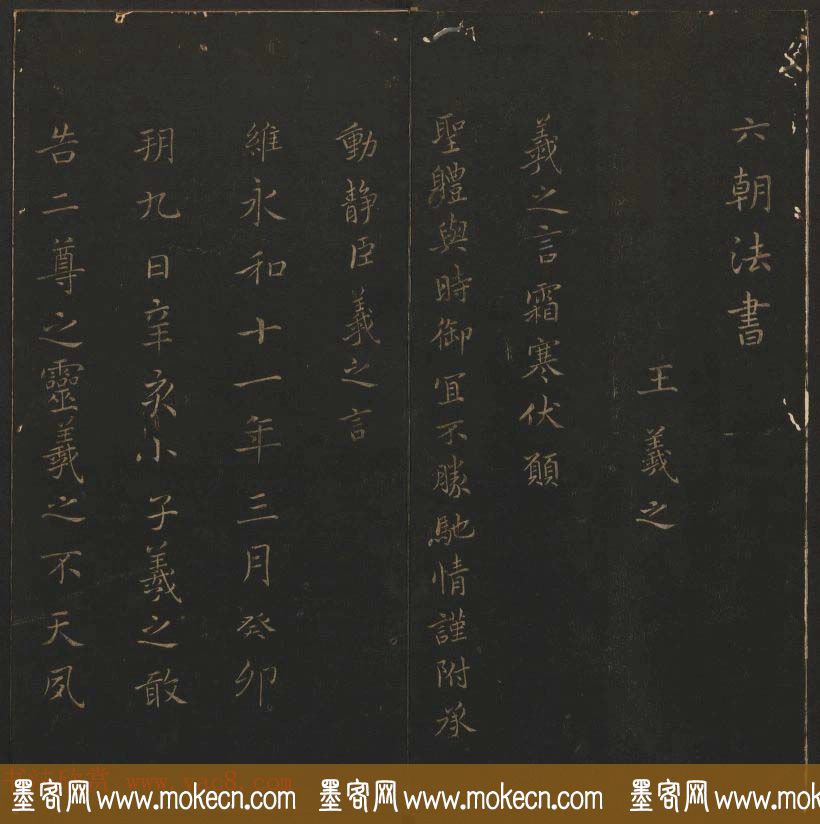 六朝法書
王羲之
羲之言霜寒伏願
聖體與時御宜不勝馳情謹附承
動靜臣羲之言
維永和十一年三月癸卯
朔九日辛亥小子羲之敢
告二尊之靈羲之不天夙
墨客网 www.mokecn.com 墨客网 www.mokecn.com 墨客网 www.mokecn.com